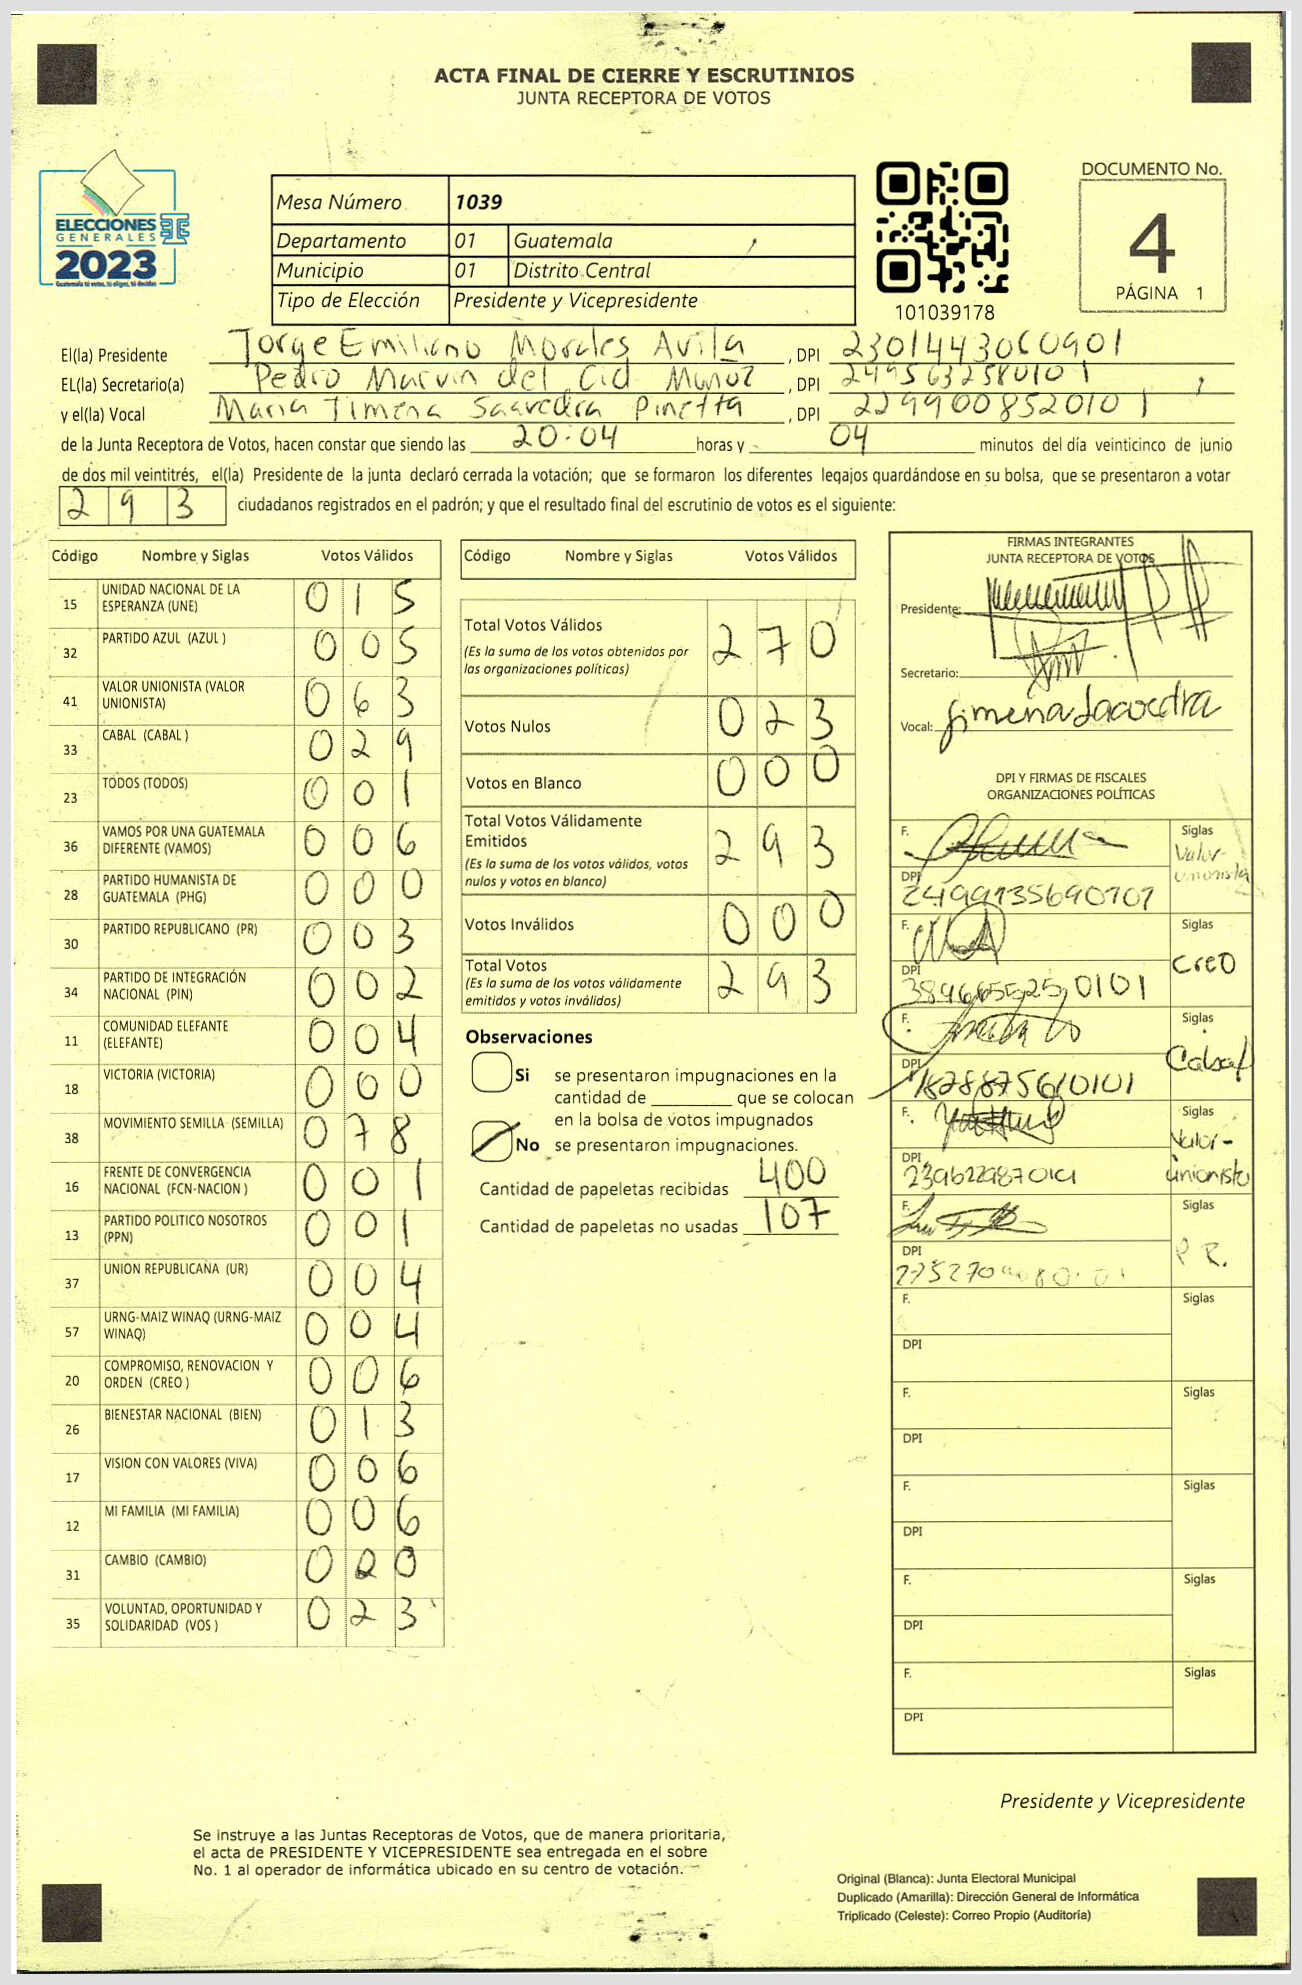 ACTA FINAL DE CIERRE Y ESCRUTINIOS
JUNTA RECEPTORA DE VOTOS
ELECCIONES
GENERALES
2023
Guatemala tú votas, tú eliges, tú decides
Mesa Número 1039
Departamento 01 Guatemala
Municipio 01 Distrito Central
Tipo de Elección Presidente y Vicepresidente
101039178
DOCUMENTO No.
4
PÁGINA 1
El(la) Presidente Jorge Emiliano Morales Avila, DPI 2301443060901
EL(la) Secretario(a) Pedro Marvin del Cid Muñoz, DPI
y el(la) Vocal Maria Jimena Saavedra Pinetta, DPI 2299008520101
de la Junta Receptora de Votos, hacen constar que siendo las 20:04 horas y 04 minutos del día veinticinco de junio
de dos mil veintitrés, el(la) Presidente de la junta declaró cerrada la votación; que se formaron los diferentes legajos guardándose en su bolsa, que se presentaron a votar
293 ciudadanos registrados en el padrón; y que el resultado final del escrutinio de votos es el siguiente:
Código Nombre y Siglas Votos Válidos
15 UNIDAD NACIONAL DE LA ESPERANZA (UNE) 015
32 PARTIDO AZUL (AZUL ) 005
41 VALOR UNIONISTA (VALOR UNIONISTA) 063
33 CABAL (CABAL ) 029
23 TODOS (TODOS) 001
36 VAMOS POR UNA GUATEMALA DIFERENTE (VAMOS) 006
28 PARTIDO HUMANISTA DE GUATEMALA (PHG) 000
30 PARTIDO REPUBLICANO (PR) 003
34 PARTIDO DE INTEGRACIÓN NACIONAL (PIN) 002
11 COMUNIDAD ELEFANTE (ELEFANTE) 004
18 VICTORIA (VICTORIA) 000
38 MOVIMIENTO SEMILLA (SEMILLA) 078
16 FRENTE DE CONVERGENCIA NACIONAL (FCN-NACION ) 001
13 PARTIDO POLITICO NOSOTROS (PPN) 001
37 UNION REPUBLICANA (UR) 004
57 URNG-MAIZ WINAQ (URNG-MAIZ WINAQ) 004
20 COMPROMISO, RENOVACION Y ORDEN (CREO ) 006
26 BIENESTAR NACIONAL (BIEN) 013
17 VISION CON VALORES (VIVA) 006
12 MI FAMILIA (MI FAMILIA) 006
31 CAMBIO (CAMBIO)
35 VOLUNTAD, OPORTUNIDAD Y SOLIDARIDAD (VOS ) 023
Código Nombre y Siglas Votos Válidos
Total Votos Válidos 270
(Es la suma de los votos obtenidos por
las organizaciones políticas)
Votos Nulos 023
Votos en Blanco 000
Total Votos Válidamente
Emitidos 293
(Es la suma de los votos válidos, votos
nulos y votos en blanco)
Votos Inválidos 000
Total Votos 293
(Es la suma de los votos válidamente
emitidos y votos inválidos)
Observaciones
Si se presentaron impugnaciones en la
cantidad de ________ que se colocan
en la bolsa de votos impugnados
No se presentaron impugnaciones.
Cantidad de papeletas recibidas 400
Cantidad de papeletas no usadas 107
FIRMAS INTEGRANTES
JUNTA RECEPTORA DE VOTOS
Presidente:
Secretario:
Vocal: Jimena Saavedra
DPI Y FIRMAS DE FISCALES
ORGANIZACIONES POLÍTICAS
F. Siglas
Valor-
unionista
DPI
2499735690101
F. Siglas
CREO
DPI
F. Siglas
Cabal
DPI
F. Siglas
Valor-
unionista
DPI
F. Siglas
P.R.
DPI
F. Siglas
DPI
F. Siglas
DPI
F. Siglas
DPI
F. Siglas
DPI
F. Siglas
DPI
Presidente y Vicepresidente
Se instruye a las Juntas Receptoras de Votos, que de manera prioritaria,
el acta de PRESIDENTE Y VICEPRESIDENTE sea entregada en el sobre
No. 1 al operador de informática ubicado en su centro de votación.
Original (Blanca): Junta Electoral Municipal
Duplicado (Amarilla): Dirección General de Informática
Triplicado (Celeste): Correo Propio (Auditoría)